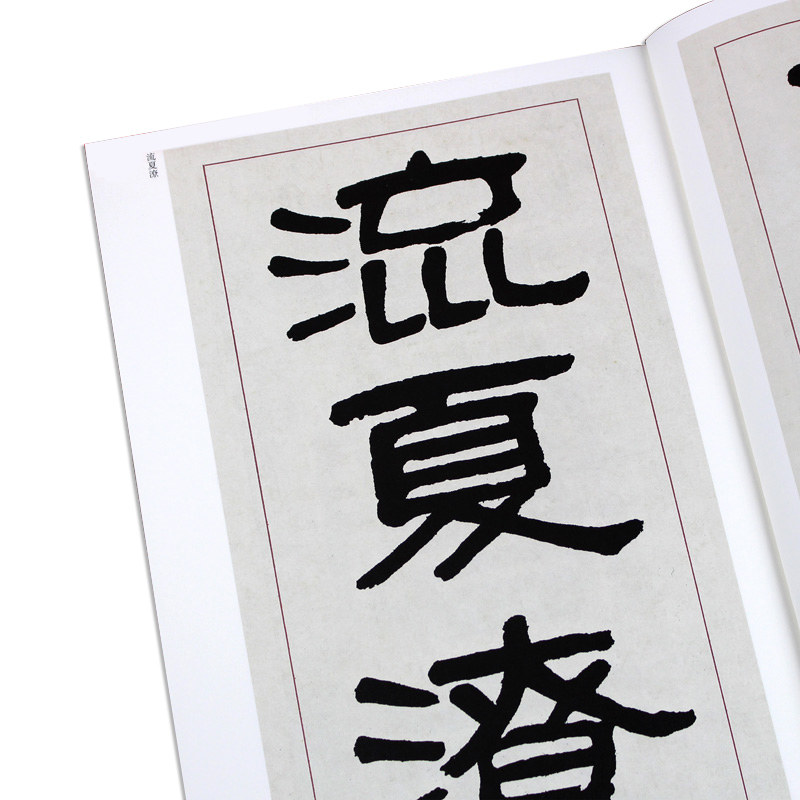 流夏潦
流
夏
潦